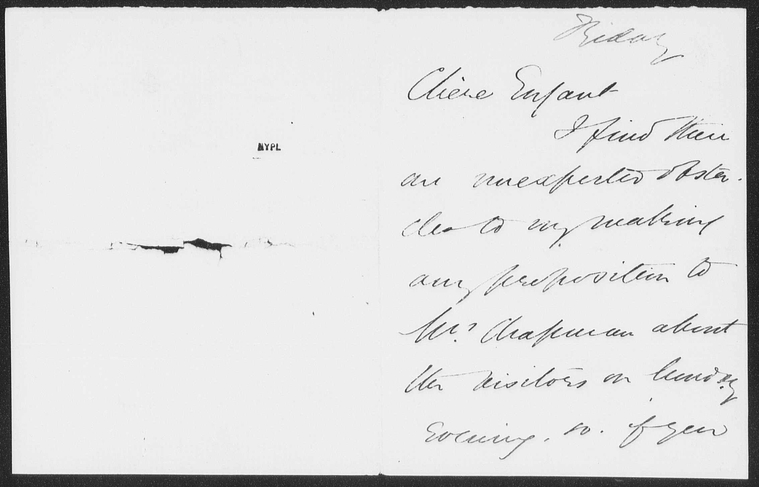 NYPL
Friday
Chère Enfant
I find there
are unexpected obsta-
cles to my making
any proposition to
Mr. Chapman about
the visitors on Sunday
Evening. so if you